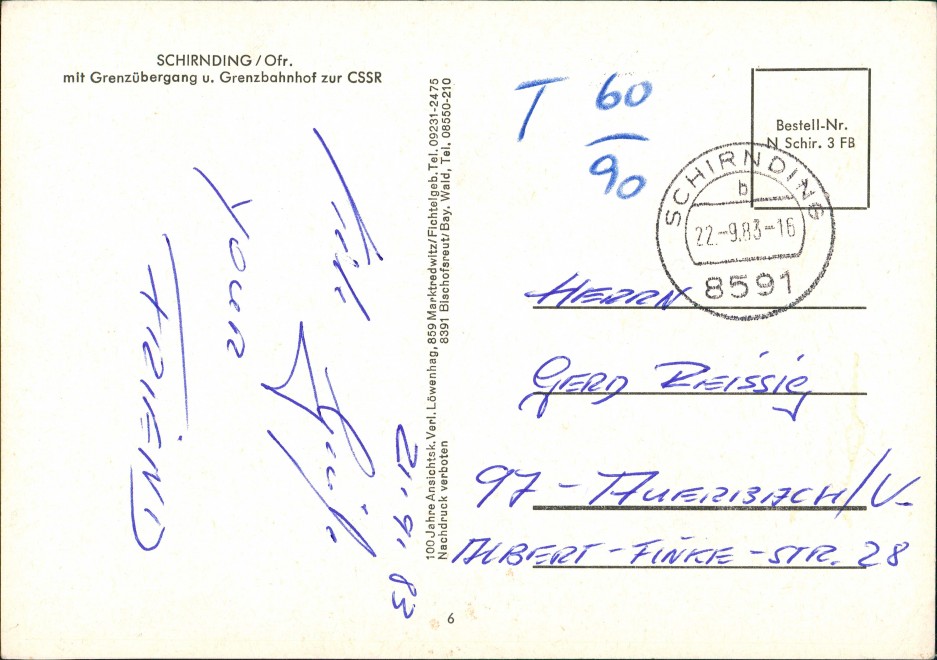 SCHIRNDING / Ofr.
mit Grenzübergang u. Grenzbahnhof zur CSSR
T 60
90
Bestell-Nr.
N Schir. 3 FB
SCHIRNDING
b
22.-9.83-16
8591
HERRN
GERD REISSIG
97 - AUERBACH/V.
ALBERT-FINKE-STR. 28
100 Jahre Ansichtsk. Verl. Löwenhag, 859 Marktredwitz/Fichtelgeb. Tel. 09231-2475
8391 Bischofsreut/Bay. Wald, Tel. 08550-210
Nachdruck verboten
21. 9. 83
6